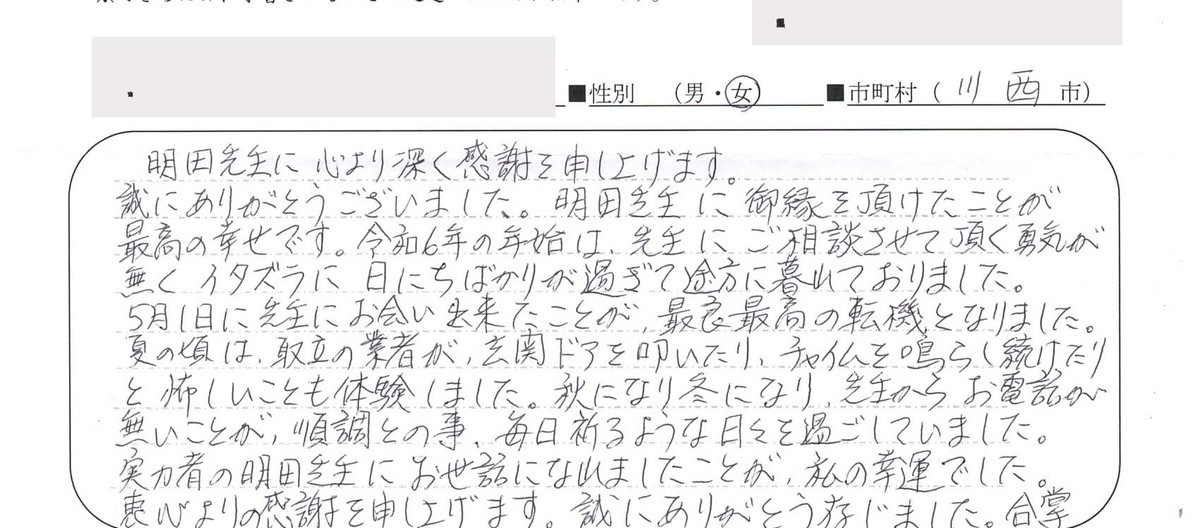 ■性別 （男・女） ■市町村（ 川西 市）
明田先生に心より深く感謝を申し上げます。
誠にありがとうございました。明田先生に御縁を頂けたことが
最高の幸せです。令和6年の年始は、先生にご相談させて頂く勇気が
無くイタズラに日にちばかりが過ぎて途方に暮れておりました。
5月1日に先生にお会い出来たことが、最良最高の転機となりました。
夏の頃は、取立の業者が、玄関ドアを叩いたり、チャイムを鳴らし続けたり
と怖しいことも体験しました。秋になり冬になり、先生からお電話が
無いことが、順調との事、毎日祈るような日々を過ごしていました。
実力者の明田先生にお世話になれましたことが、私の幸運でした。
衷心よりの感謝を申し上げます。誠にありがとう存じました。合掌